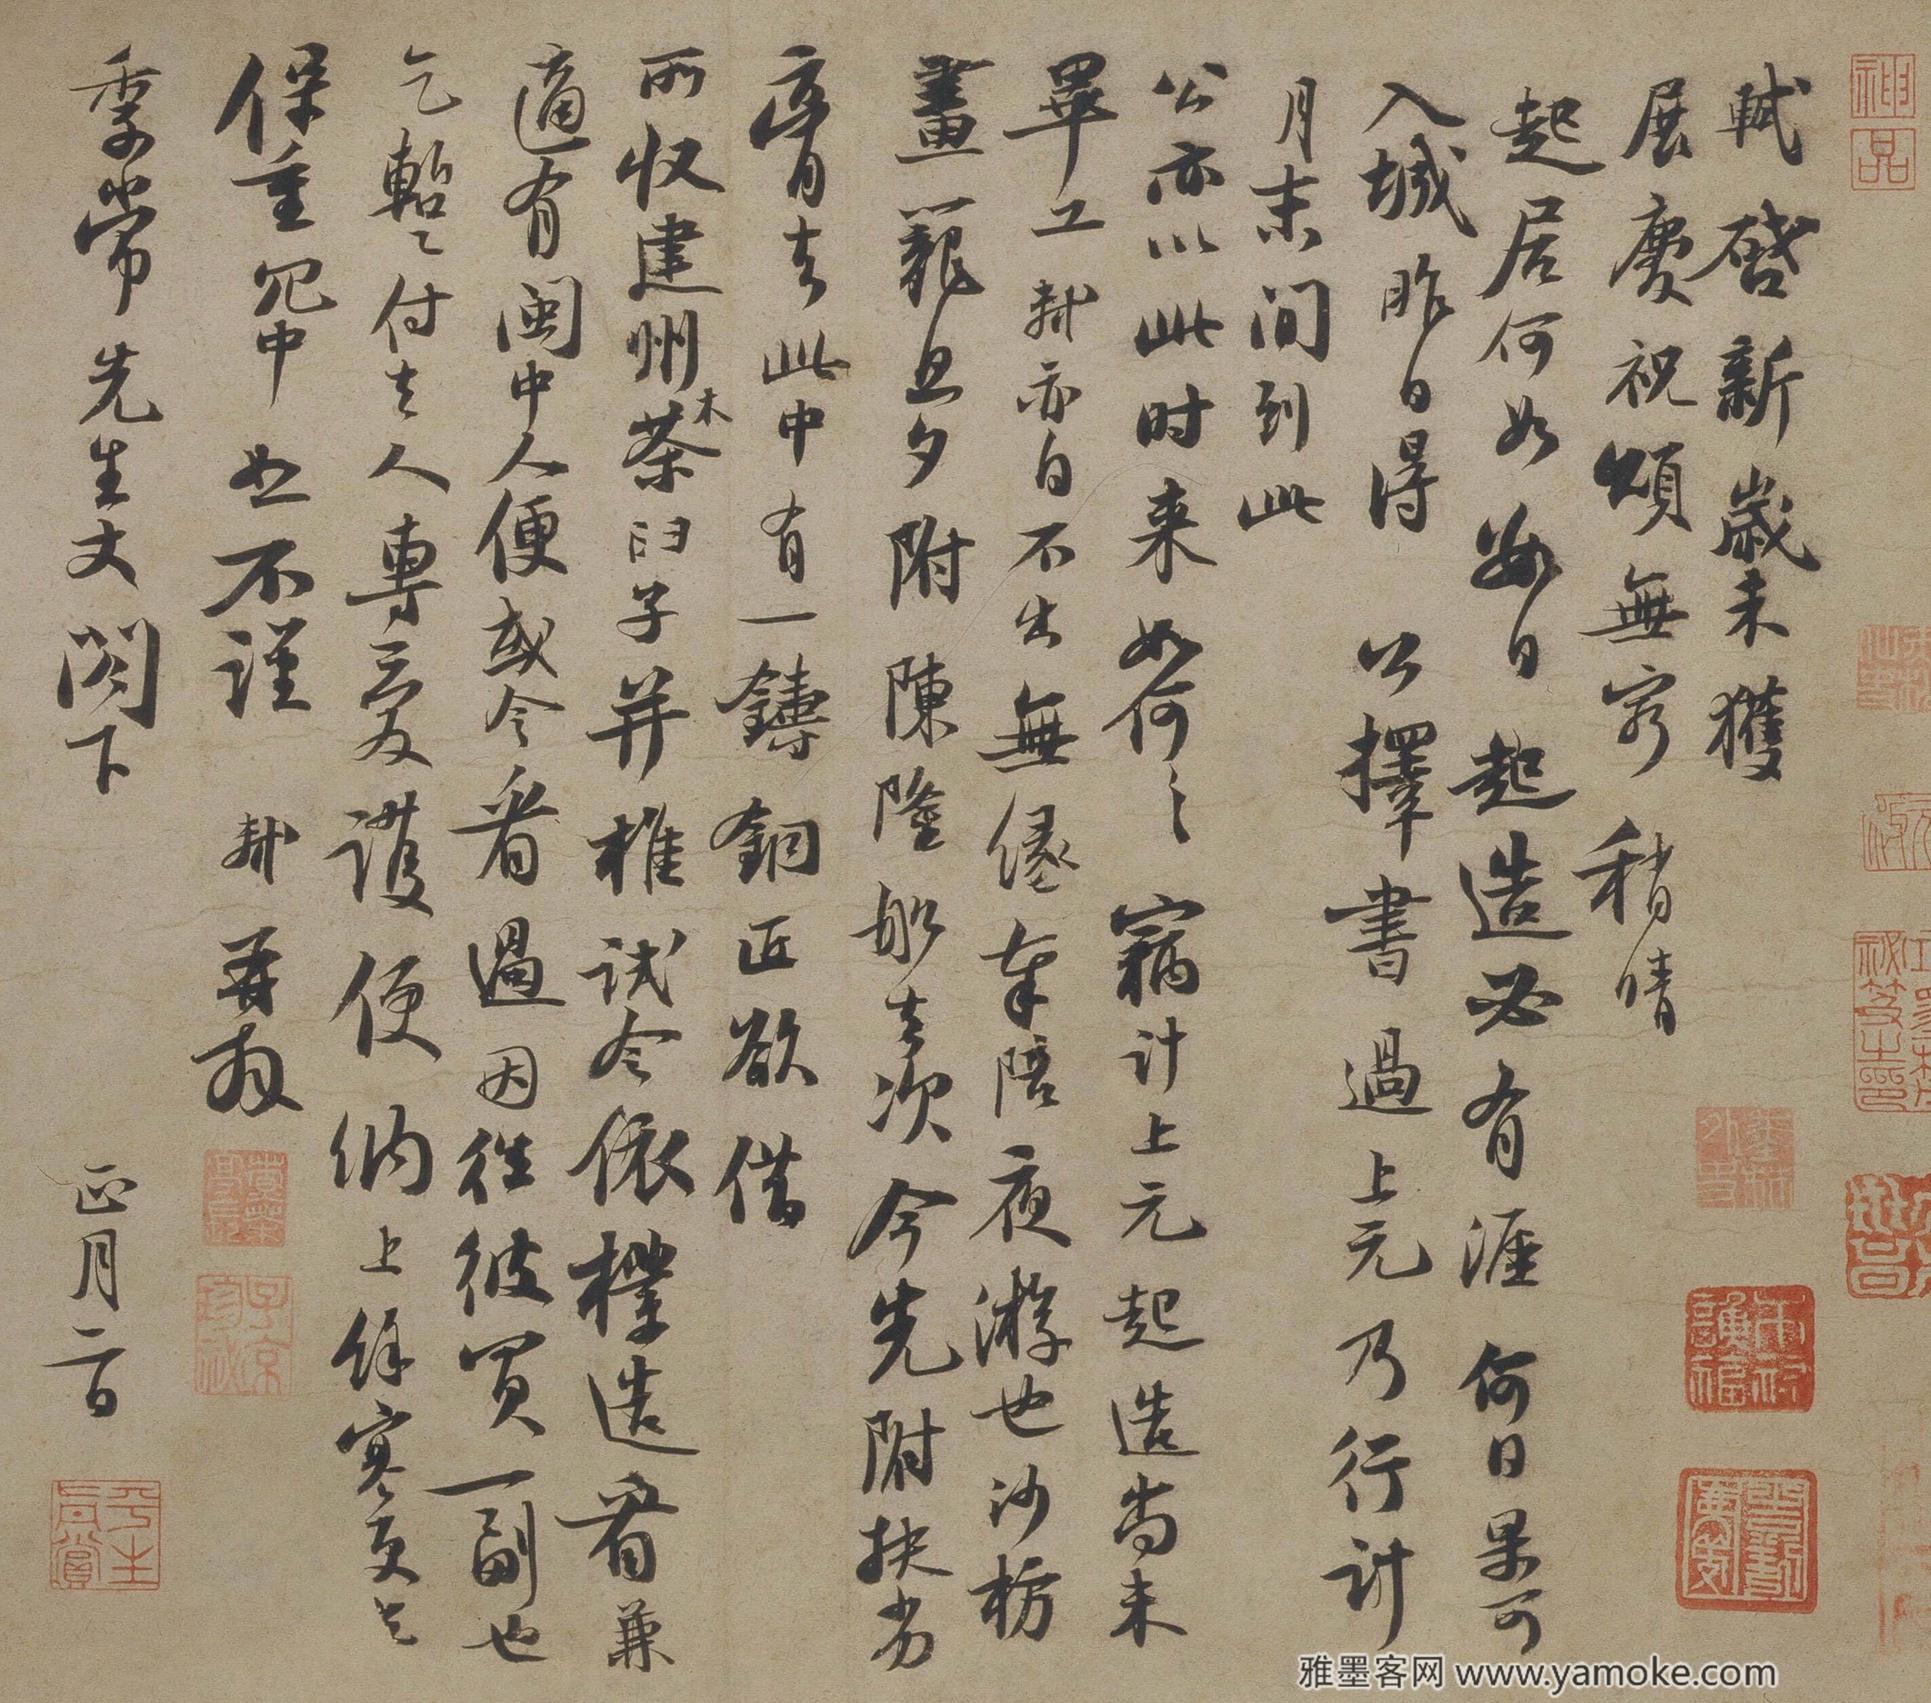 軾啓新歲未獲
展慶祝頌無窮稍晴
起居何如數日起造必有涯何日果可
入城昨日得公擇書過上元乃行計
月末間到此
公亦以此時來如何何竊計上元起造尚未
畢工軾亦自不出無緣奉陪夜游也沙枋
畫籠旦夕附陳隆船去次今先附扶劣
膏去此中有一鑄銅匠欲借
所收建州木茶臼子并椎試令依樣造看兼
適有閩中人便或令看過因往彼買一副也
乞暫付去人專愛護便納上餘寒更乞
保重冗中恕不謹軾再拜
季常先生丈閤下正月二日
神品
平生真賞
子京珍藏
雅墨客网 www.yamoke.com